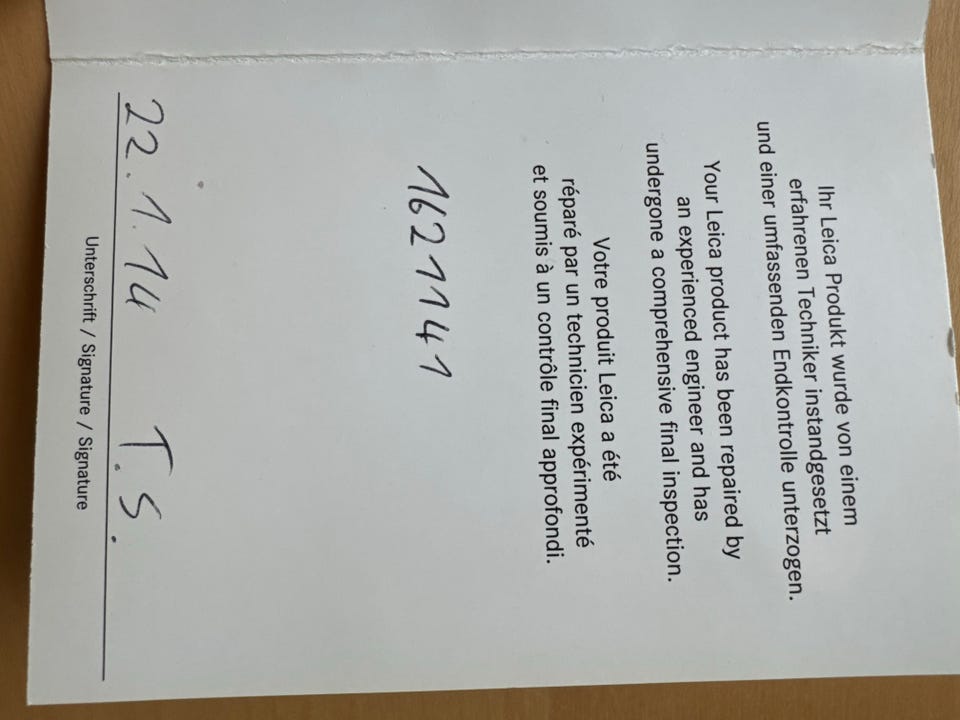 Ihr Leica Produkt wurde von einem
erfahrenen Techniker instandgesetzt
und einer umfassenden Endkontrolle unterzogen.
Your Leica product has been repaired by
an experienced engineer and has
undergone a comprehensive final inspection.
Votre produit Leica a été
réparé par un technicien expérimenté
et soumis à un contrôle final approfondi.
1621141
22.1.14 T.S.
Unterschrift / Signature / Signature